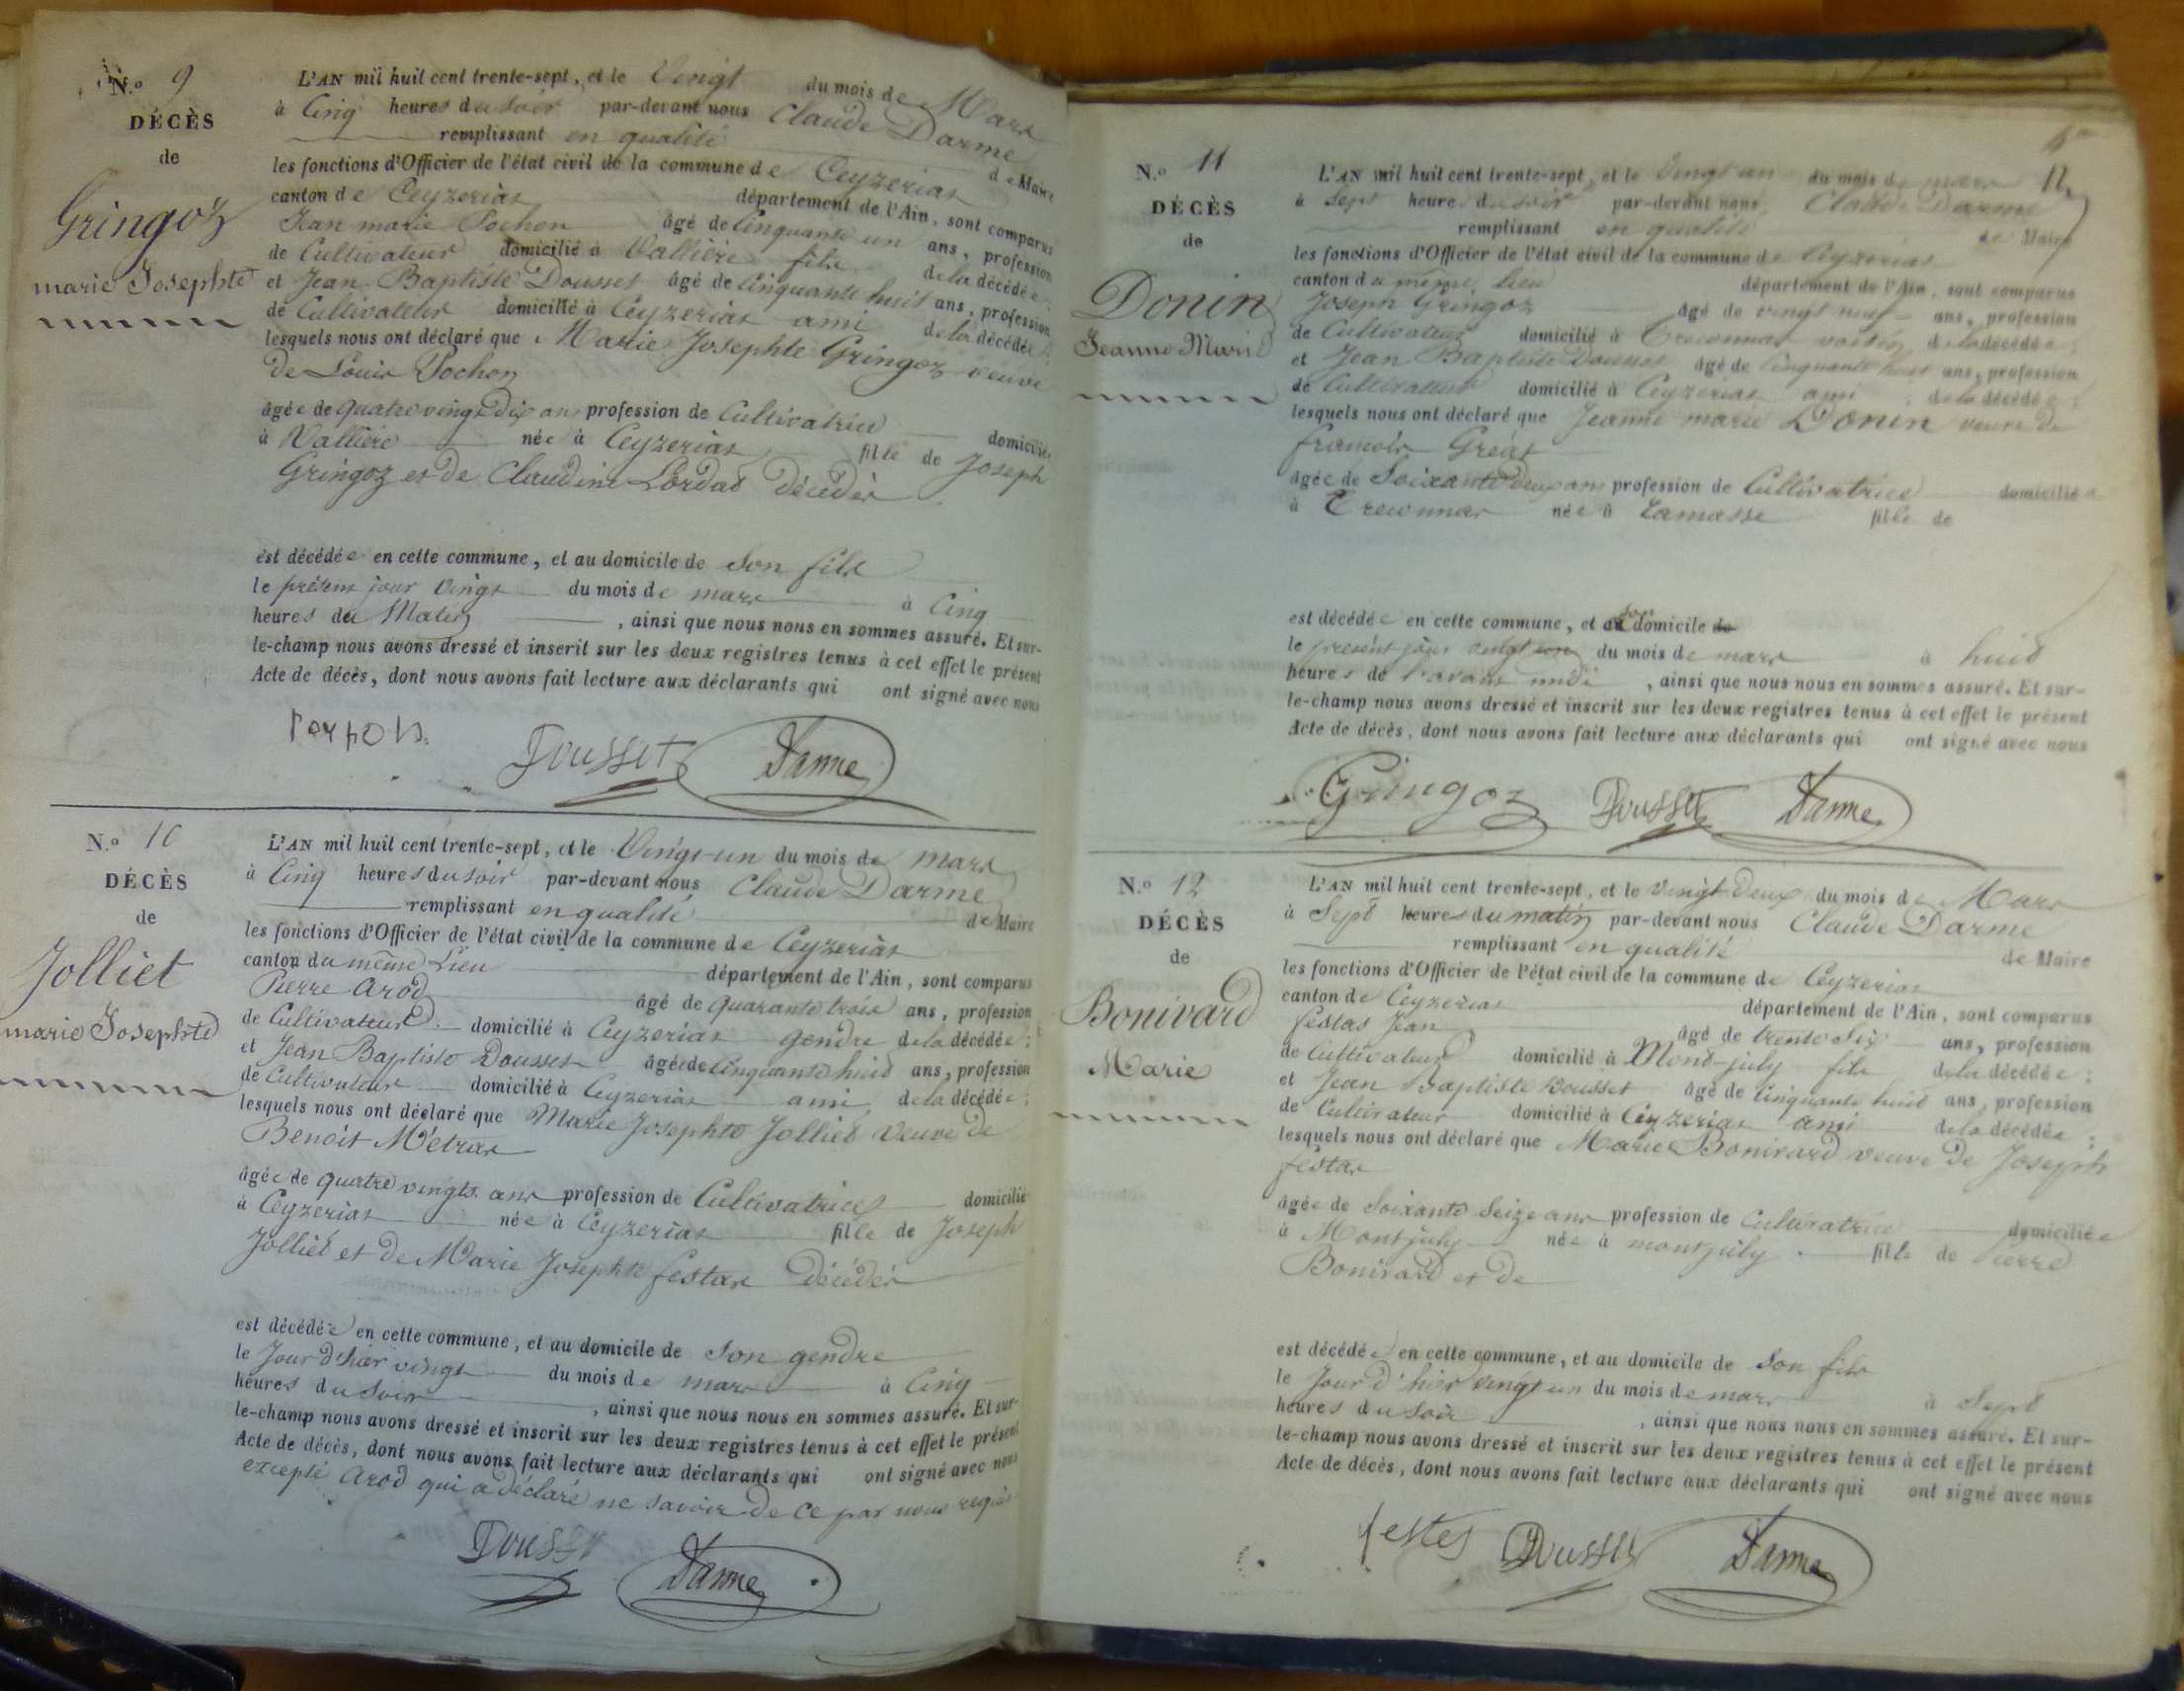 N.o 9
DÉCÈS
de
Gringoz
marie Josephte
L'AN mil huit cent trente-sept, et le Vingt du mois de Mars
à Cinq heures du soir par-devant nous Claude Darme
remplissant en qualité de Maire
les fonctions d'Officier de l'état civil de la commune de Ceyzerias
canton de Ceyzerias département de l'Ain, sont comparus
Jean marie Pochon âgé de Cinquante un ans, profession
de Cultivateur domicilié à Vallière fils de la décédée;
et Jean Baptiste Dousset âgé de Cinquante huit ans, profession
de Cultivateur domicilié à Ceyzerias ami de la décédée;
lesquels nous ont déclaré que Marie Josephte Gringoz veuve
de Louis Pochon
âgée de quatre vingt Dix ans profession de Cultivatrice domicilié
à Vallière née à Ceyzerias fille de Joseph
Gringoz et de Claudine Lordas décédés
est décédée en cette commune, et au domicile de Son fils
le présent jour Vingt du mois de mars à Cinq
heures du Matin, ainsi que nous nous en sommes assuré. Et sur-
le-champ nous avons dressé et inscrit sur les deux registres tenus à cet effet le présent
Acte de décès, dont nous avons fait lecture aux déclarants qui ont signé avec nous
Dousset Darme
N.o 10
DÉCÈS
de
Jolliet
marie Josephte
L'AN mil huit cent trente-sept, et le Vingt-un du mois de mars
à Cinq heures du soir par-devant nous Claude Darme
remplissant en qualité de Maire
les fonctions d'Officier de l'état civil de la commune de Ceyzerias
canton du même Lieu département de l'Ain, sont comparus
Pierre Arod âgé de quarante trois ans, profession
de Cultivateur domicilié à Ceyzerias gendre de la décédée;
et Jean Baptiste Dousset âgé de Cinquante huit ans, profession
de Cultivateur domicilié à Ceyzerias ami de la décédée;
lesquels nous ont déclaré que Marie Josephte Jolliet Veuve de
Benoit Métras
âgée de quatre vingts ans profession de Cultivatrice domicilié
à Ceyzerias née à Ceyzerias fille de Joseph
Jolliet et de Marie Josephte festas Décédés
est décédée en cette commune, et au domicile de Son gendre
le Jour d'hier vingt du mois de mars à Cinq
heures du Soir, ainsi que nous nous en sommes assuré. Et sur-
le-champ nous avons dressé et inscrit sur les deux registres tenus à cet effet le présent
Acte de décès, dont nous avons fait lecture aux déclarants qui ont signé avec nous
excepté Arod qui a déclaré ne savoir de ce par nous requis
Dousset Darme
11
N.o 11
DÉCÈS
de
Donin
Jeanne Marie
L'AN mil huit cent trente-sept, et le Vingt un du mois de mars
à Sept heures du soir par-devant nous Claude Darme
remplissant en qualité de Maire
les fonctions d'Officier de l'état civil de la commune de Ceyzerias
canton du même lieu département de l'Ain, sont comparus
Joseph Gringoz âgé de vingt neuf ans, profession
de Cultivateur domicilié à Treconnas voisin de la décédée;
et Jean Baptiste Dousset âgé de Cinquante huit ans, profession
de Cultivateur domicilié à Ceyzerias ami de la décédée;
lesquels nous ont déclaré que Jeanne marie Donin veuve de
francois
âgée de Soixante Deux ans profession de Cultivatrice domiciliée
à Treconnas née à Ramasse fille de
est décédée en cette commune, et au son domicile de
le présent jour vingt un du mois de mars à huit
heures de l'avant midi, ainsi que nous nous en sommes assuré. Et sur-
le-champ nous avons dressé et inscrit sur les deux registres tenus à cet effet le présent
Acte de décès, dont nous avons fait lecture aux déclarants qui ont signé avec nous
Gringoz Dousset Darme
N.o 12
DÉCÈS
de
Bonivard
Marie
L'AN mil huit cent trente-sept, et le Vingt Deux du mois de Mars
à Sept heures du matin par-devant nous Claude Darme
remplissant en qualité de Maire
les fonctions d'Officier de l'état civil de la commune de Ceyzerias
canton de Ceyzerias département de l'Ain, sont comparus
festas Jean âgé de trente Six ans, profession
de Cultivateur domicilié à Mont-july fils de la décédée;
et Jean Baptiste Dousset âgé de Cinquante huit ans, profession
de Cultivateur domicilié à Ceyzerias ami de la décédée;
lesquels nous ont déclaré que Marie Bonivard veuve de Joseph
festas
âgée de Soixante Seize ans profession de Cultivatrice domiciliée
à Montjuly née à montjuly fille de Pierre
Bonivard et de
est décédée en cette commune, et au domicile de Son fils
le Jour d'hier vingt un du mois de mars à Sept
heures du Soir, ainsi que nous nous en sommes assuré. Et sur-
le-champ nous avons dressé et inscrit sur les deux registres tenus à cet effet le présent
Acte de décès, dont nous avons fait lecture aux déclarants qui ont signé avec nous
festes Dousset Darme